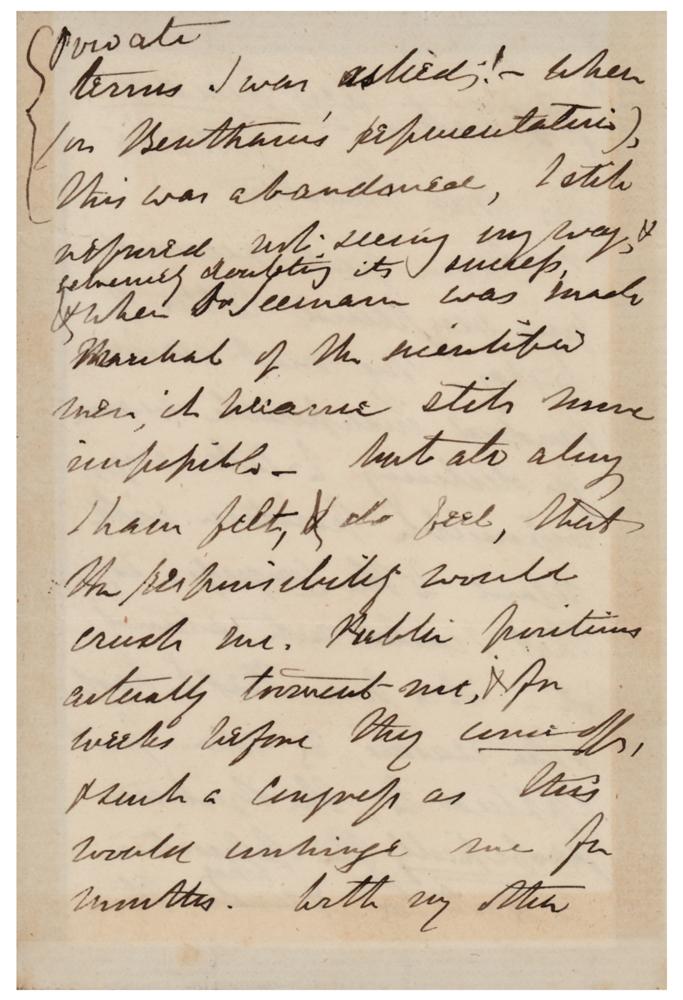 Private
terms I was asked;!— when
(on Bentham's representation),
this was abandoned, I still
refused not seeing my way, &
extremely doubting its success,
& when Dr Seemann was made
Marshal of the scientific
men, it became still more
impossible — but all along
I have felt, & do feel, that
the responsibility would
crush me. Public positions
actually torment me, & for
weeks before they come off,
& such a Congress as this
would unhinge me for
months. With my other